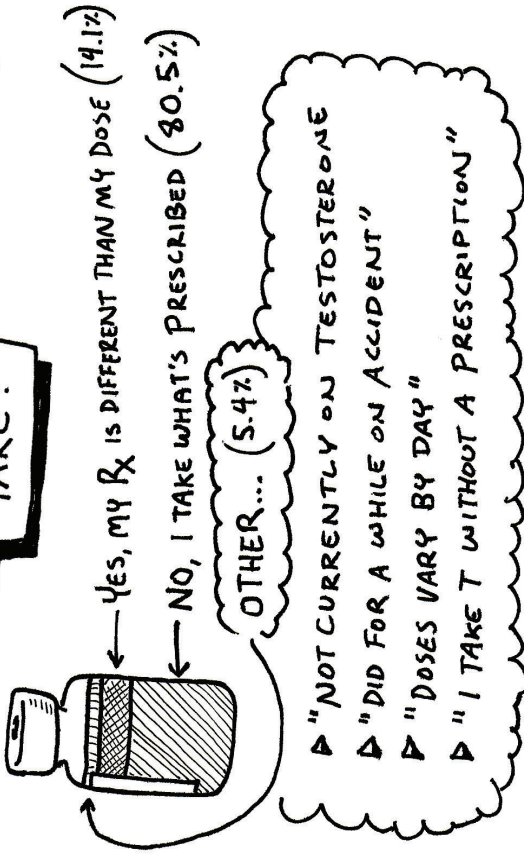 TAKE?
YES, MY Rx IS DIFFERENT THAN MY DOSE (14.1%)
NO, I TAKE WHAT'S PRESCRIBED (80.5%)
OTHER.... (5.4%)
▷ "NOT CURRENTLY ON TESTOSTERONE
▷ "DID FOR A WHILE ON ACCIDENT"
▷ "DOSES VARY BY DAY"
▷ "I TAKE T WITHOUT A PRESCRIPTION"